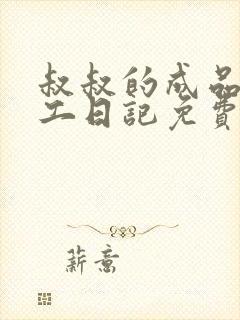 叔叔的成品
工日記免費
薪意